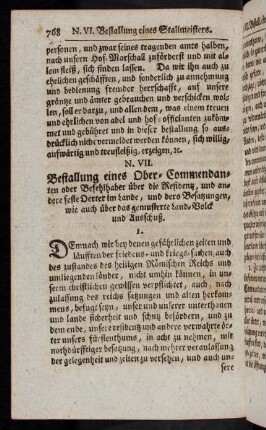 768 N. VI. Bestallung eines Stallmeisters.
personen, und zwar seines tragenden amts halben,
nach unserm Hof-Marschall zuförderst und mit al-
lem fleiß, sich finden lassen. Da wir ihn auch zu
ehrlichen geschäfften, und sonderlich zu annehmung
und bedienung fremder herrschafft, auf unsere
gräntze und ämter gebrauchen und verschicken wol-
len, soll er darzu, und allen dem, was einem treuen
und ehrlichen von adel und hof-officianten zukömt
und gebühret und in dieser bestallung so aus-
drücklich nicht vermeldet werden können, sich willig,
aufwärtig und treufleißig, erzeigen, ꝛc.
N. VII.
Bestallung eines Ober-Commendan-
ten oder Befehlhaber über die Residentz, und an-
dere feste Oerter im Lande, und dero Besatzungen,
wie auch über das gemusterte Land-Volck
und Ausschuß.
1.
DEmnach wir bey denen gefährlichen zeiten und
läufften der friedens- und kriegs-sachen, auch
des zustandes des heiligen Römischen Reichs und
umliegenden länder, nicht umhin können, in un-
serm christlichen gewissen verpflichtet, auch, nach
zulassung des reichs satzungen und alten herkom-
mens, befugt seyn, unser und unserer unterthanen
und lande sicherheit und schutz befördern, und zu
dem ende, unsere residentz und andere verwahrte ör-
ter unsers fürstenthums, in acht zu nehmen, mit
nothdürfftiger besatzung, nach mehrer veranlassung
der gelegenheit und zeiten zu versehen, und auch un-
sere